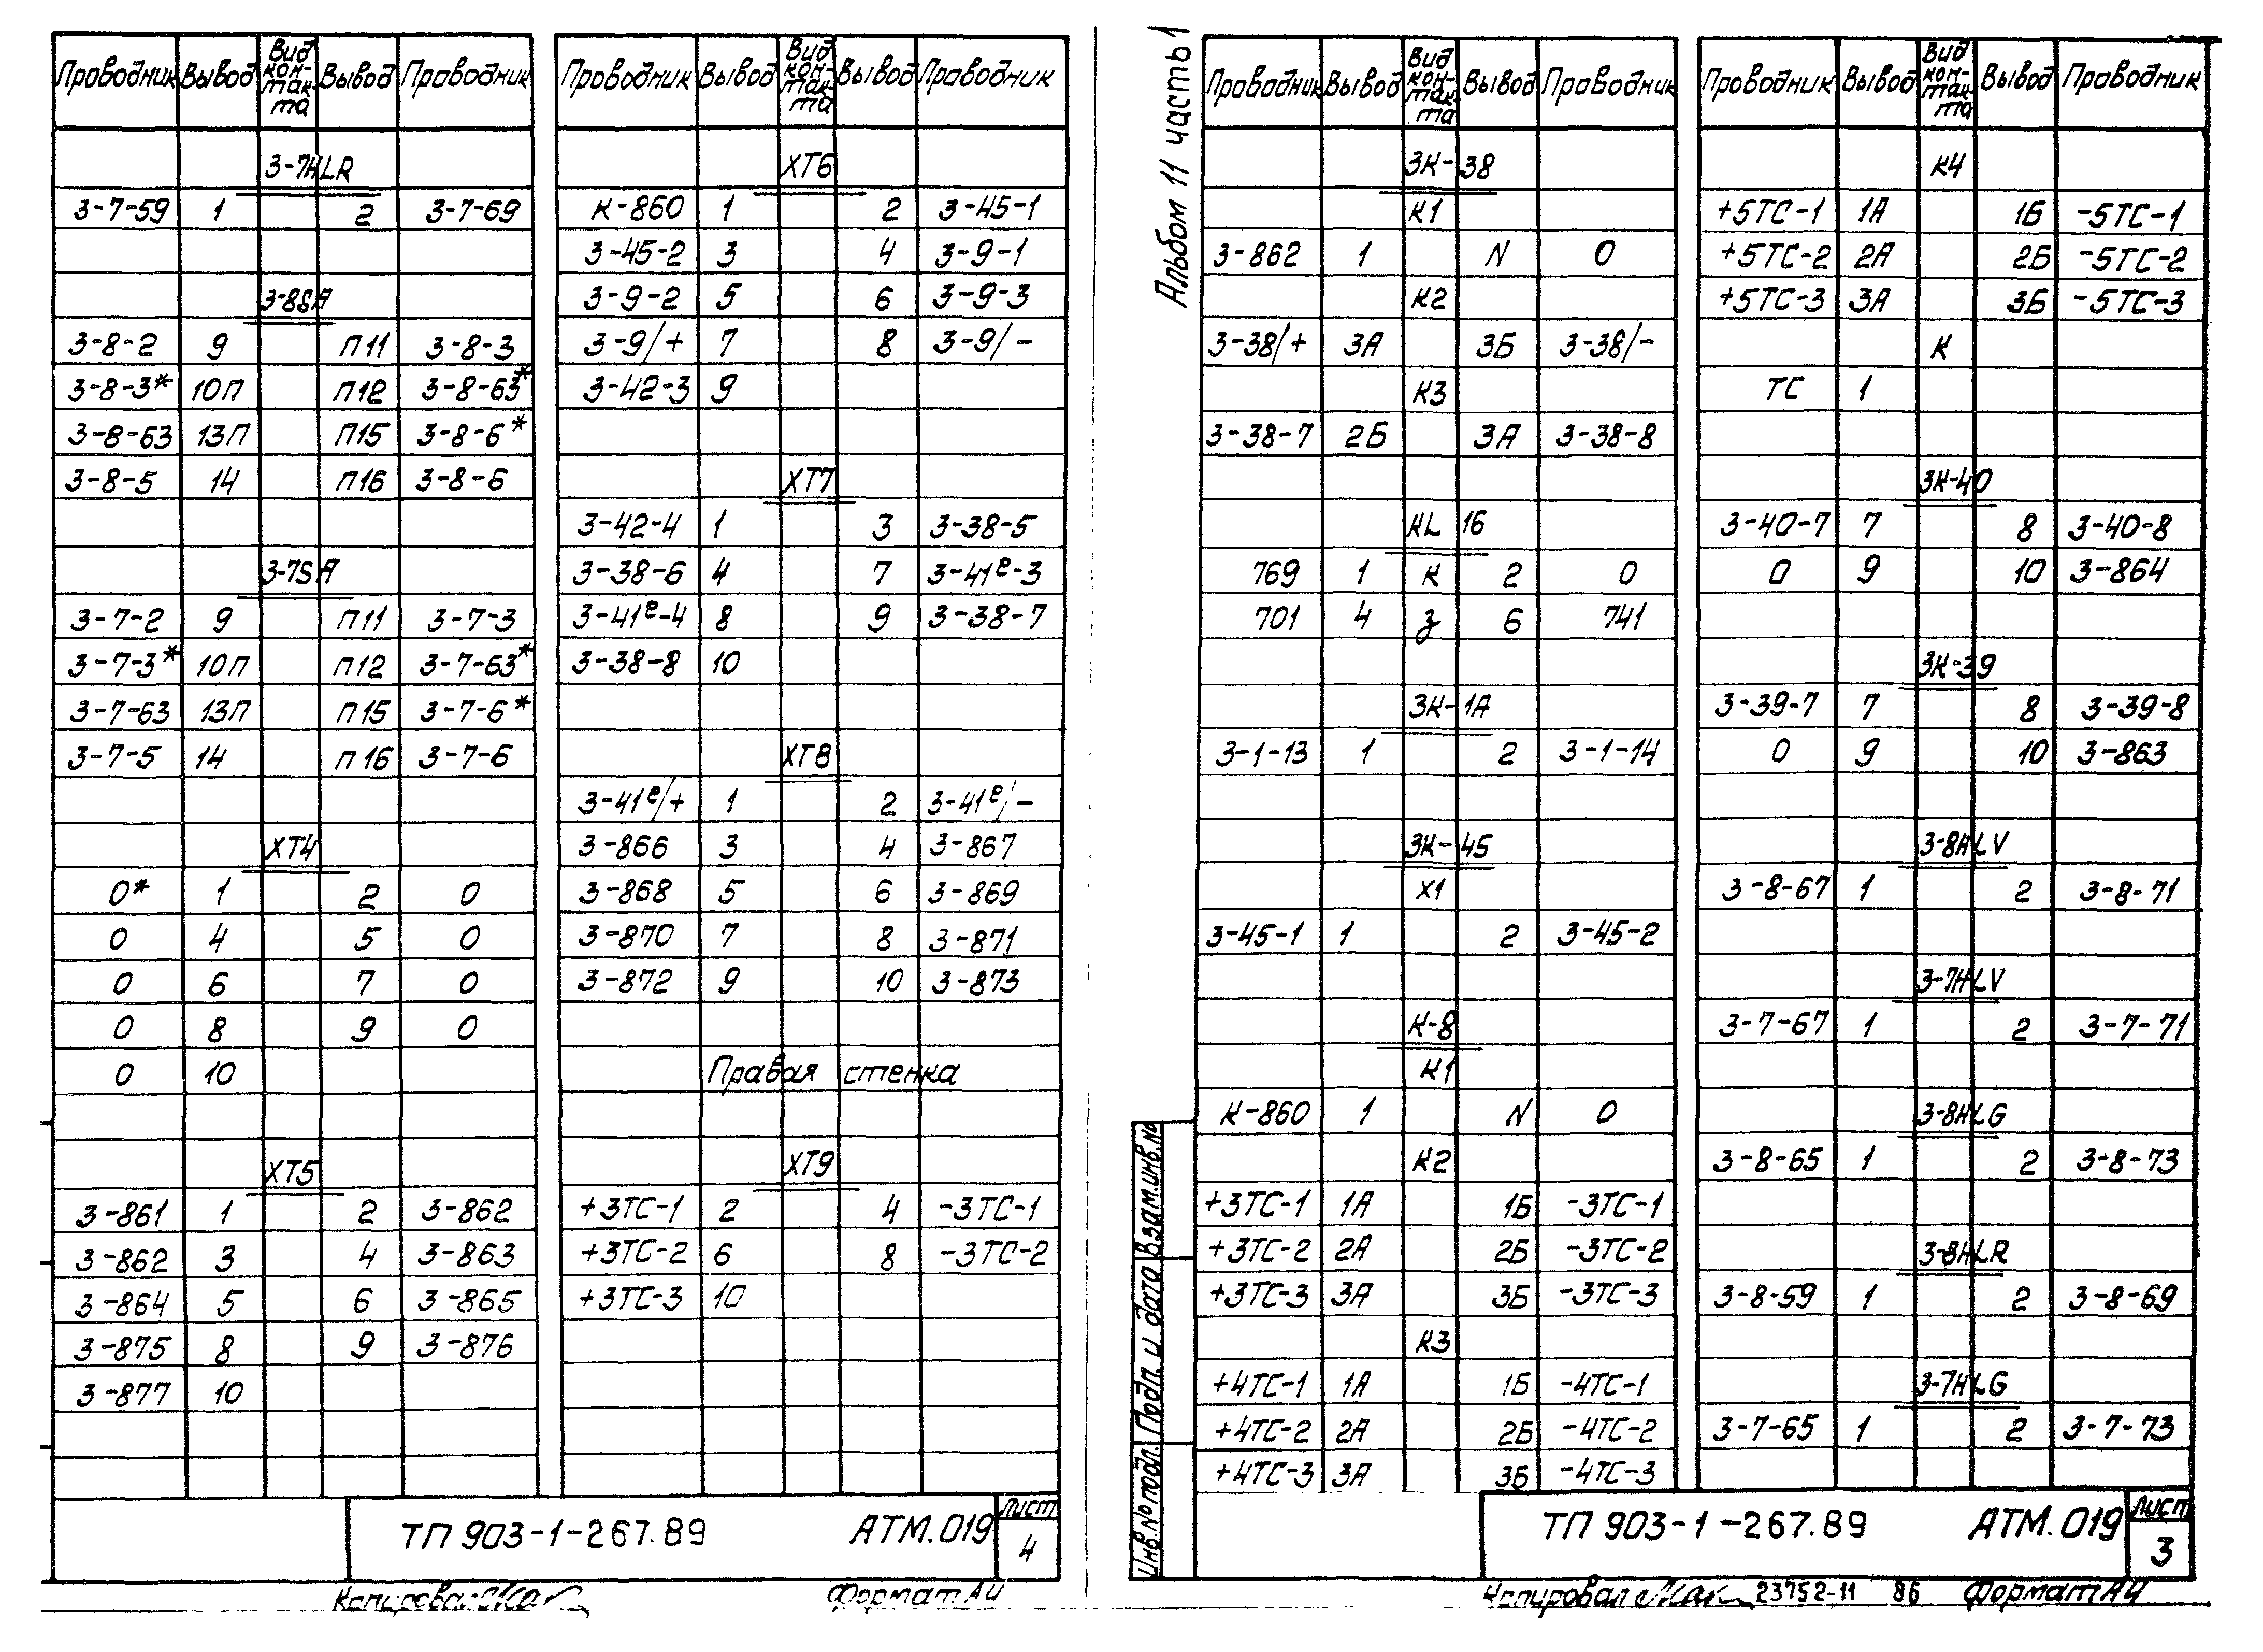 Проводник Вывод Вид кон-так-та Вывод Проводник
3-7HLR
3-7-59 1 2 3-7-69
3-8SA
3-8-2 9 П11 3-8-3
3-8-3* 10П П12 3-8-63*
3-8-63 13П П15 3-8-6*
3-8-5 14 П16 3-8-6
3-7SA
3-7-2 9 П11 3-7-3
3-7-3* 10П П12 3-7-63*
3-7-63 13П П15 3-7-6*
3-7-5 14 П16 3-7-6
XT4
0* 1 2 0
0 4 5 0
0 6 7 0
0 8 9 0
0 10
XT5
3-861 1 2 3-862
3-862 3 4 3-863
3-864 5 6 3-865
3-875 8 9 3-876
3-877 10
Проводник Вывод Вид кон-так-та Вывод Проводник
XT6
К-860 1 2 3-45-1
3-45-2 3 4 3-9-1
3-9-2 5 6 3-9-3
3-9/+ 7 8 3-9/-
3-42-3 9
XT7
3-42-4 1 3 3-38-5
3-38-6 4 7 3-41е-3
3-41е-4 8 9 3-38-7
3-38-8 10
XT8
3-41е/+ 1 2 3-41е/-
3-866 3 4 3-867
3-868 5 6 3-869
3-870 7 8 3-871
3-872 9 10 3-873
Правая стенка
XT9
+3ТС-1 2 4 -3ТС-1
+3ТС-2 6 8 -3ТС-2
+3ТС-3 10
ТП 903-1-267.89 АТМ.019
Лист
4
Копировал
Формат А4
Альбом 11 часть 1
Проводник Вывод Вид кон-так-та Вывод Проводник
3К-38
К1
3-862 1 N 0
К2
3-38/+ 3А 3Б 3-38/-
К3
3-38-7 2Б 3А 3-38-8
KL 16
769 1 К 2 0
701 4 з 6 741
3К-1А
3-1-13 1 2 3-1-14
3К-45
X1
3-45-1 1 2 3-45-2
К-8
К1
К-860 1 N 0
К2
+3ТС-1 1А 1Б -3ТС-1
+3ТС-2 2А 2Б -3ТС-2
+3ТС-3 3А 3Б -3ТС-3
К3
+4ТС-1 1А 1Б -4ТС-1
+4ТС-2 2А 2Б -4ТС-2
+4ТС-3 3А 3Б -4ТС-3
Проводник Вывод Вид кон-так-та Вывод Проводник
К4
+5ТС-1 1А 1Б -5ТС-1
+5ТС-2 2А 2Б -5ТС-2
+5ТС-3 3А 3Б -5ТС-3
К
ТС 1
3К-40
3-40-7 7 8 3-40-8
0 9 10 3-864
3К-39
3-39-7 7 8 3-39-8
0 9 10 3-863
3-8HLV
3-8-67 1 2 3-8-71
3-7HLV
3-7-67 1 2 3-7-71
3-8HLG
3-8-65 1 2 3-8-73
3-8HLR
3-8-59 1 2 3-8-69
3-7HLG
3-7-65 1 2 3-7-73
Инв.№ подл. Подп. и дата Взам.инв.№
ТП 903-1-267.89 АТМ.019
Лист
3
Копировал 23752-11 86 Формат А4